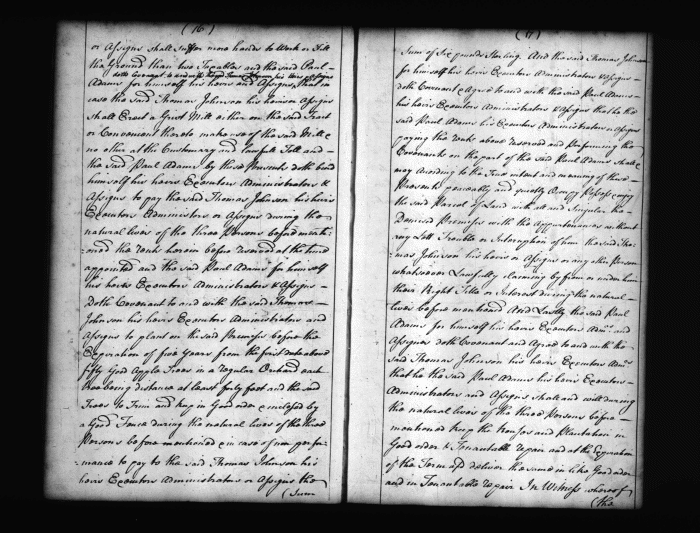 (16)
or Assigns shall suffer more hands to Work or Till
the Ground than two Tytables and the said Paul
doth Covenant to and with the said Thomas Johnson his Heirs & Assigns
Adams for himself his heirs and Assigns, that in
case the said Thomas Johnson his heirs or Assigns
shall Erect a Grist Mill either on the said Tract
or Convenient thereto make use of the said Mill &
no other at the Customary and lawfull Toll and
the said Paul Adams by these Presents doth bind
himself his heirs Executors Administrators &
Assigns to pay the said Thomas Johnson his heirs
Executors Administors or Assigns during the
natural lives of the three Persons before menti-
=oned the Rents herein before reserved at the time
appointed and the said Paul Adams for himself
his heirs Executors Administrators & Assigns
Doth Covenant to and with the said Thomas
Johnson his heirs Executors Administrators and
Assigns to plant on the said Premises before the
Expiration of five Years from the first date above
fifty Good Apple Trees in a regular Orchard each
tree being distance at least forty feet and the said
Trees to Trim and keep in Good order & enclosed by
a Good Fence during the natural lives of the three
Persons before mentioned & in case of non perfor-
=mance to pay to the said Thomas Johnson his
heirs Executors Administrators or Assigns the
(Sum
(17)
Sum of Six pounds Sterling. And the said Thomas Johnson
for himself his heirs Executors Administrators & Assigns
doth Covenant & Agree to and with the said Paul Adams
his heirs Executors Administrators & Assigns that he the
said Paul Adams his Executors Administrators or Assigns
paying the Rents above reserved and performing the
Covenants on the part of the said Paul Adams shall &
may according to the True intent and meaning of these
Presents peaceably and quietly Occupy Possess & enjoy
the said Parcel of Land with all and Singular the
Demised Premises with the appurtenances without
any Lett Trouble or Interruption of him the said Tho-
=mas Johnson his heirs or Assigns or any other Person
whatsoever Lawfully claiming by from or under him
their Right Title or Interest during the natural
lives before mentioned And Lastly the said Paul
Adams for himself his heirs Executors Admrs. and
Assigns doth Covenant and Agree to and with the
said Thomas Johnson his heirs Executors Admrs.
that he the said Paul Adams his heirs Executors
Administrators and Assigns shall and will during
the natural lives of the three Persons before
mentioned keep the houses and Plantation in
Good order & Tenantable repair and at the Expiration
of the Term deliver the same in like Good order
and in Tenantable repair In Witness whereof
(the